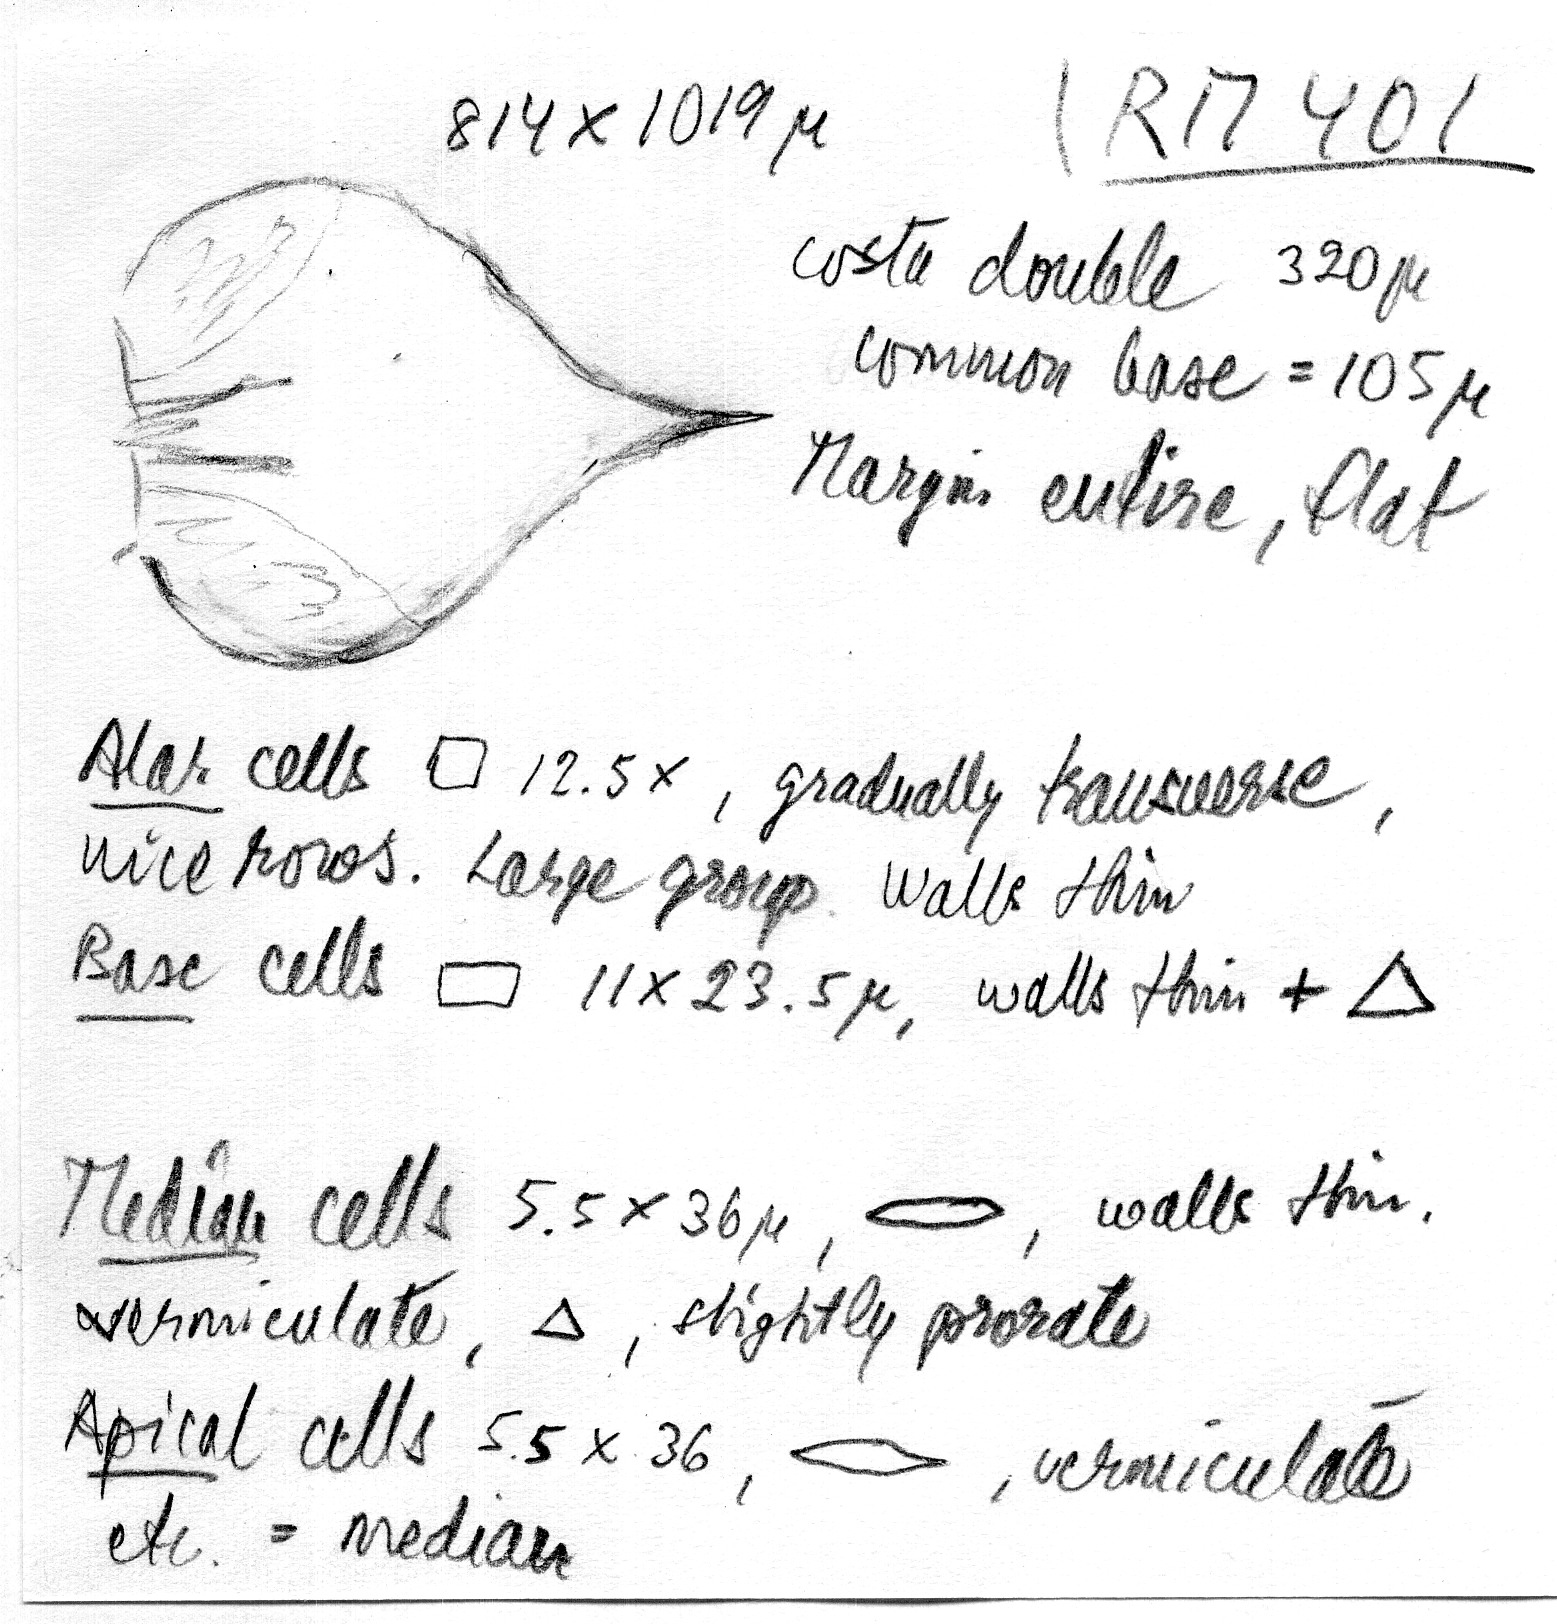 814 x 1019 μ
RM 401
costa double 320 μ
common base = 105 μ
Margin entire, flat
Alar cells □ 12.5 x , gradually transverse,
nice rows. Large group. Walls thin
Base cells ▭ 11 x 23.5 μ, walls thin + △
Median cells 5.5 x 36 μ, , walls thin.
vermiculate, △, slightly prorate
Apical cells 5.5 x 36, , vermiculate
etc. = median